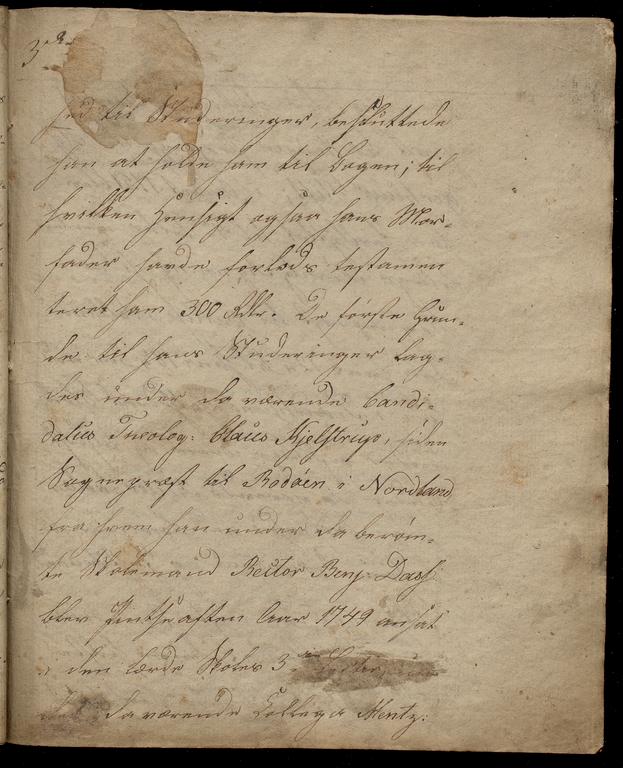 3de
hed til Studeringer, besluttede
han at holde ham til Bogen; til
hvilken Hensigt ogsaa hans Mor-
fader havde forlods testamen
teret ham 300 Rdlr. De første Grun-
de til hans Studeringer lag-
des under da værende Candi-
datus Theolog: Claus Hjelstrup, siden
Sognepræst til Rødøen i Nordland
fra hvem han under da berøm-
te Skolemand Rector Benj. Dass
blev Juulseaften Aar 1749 ansat
i den lærde Skoles 3de
da værende Collega Mentz: